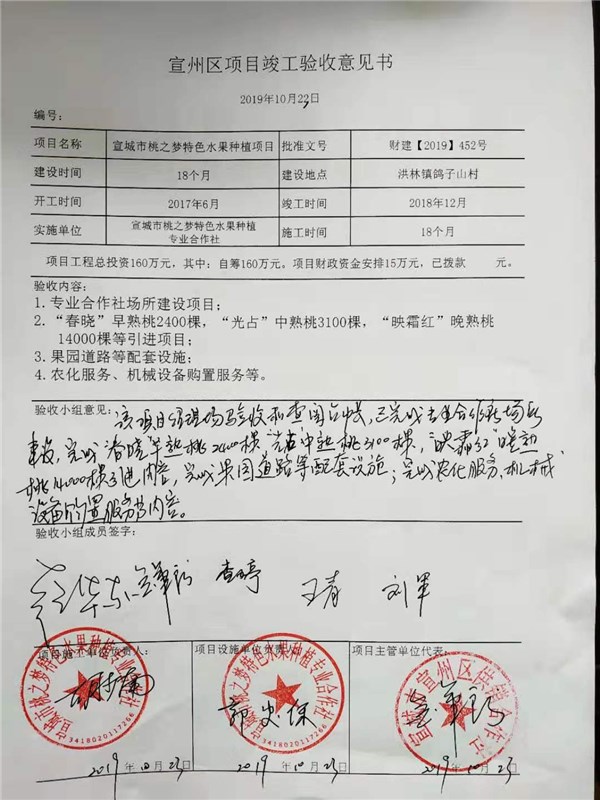 宣州区项目竣工验收意见书
2019年10月23日
编号:
项目名称 宣城市桃之梦特色水果种植项目 批准文号 财建【2019】452号
建设时间 18个月 建设地点 洪林镇鸽子山村
开工时间 2017年6月 竣工时间 2018年12月
实施单位 宣城市桃之梦特色水果种植专业合作社 施工时间 18个月
项目工程总投资160万元,其中:自筹160万元。项目财政资金安排15万元,已拨款 元。
验收内容:
1. 专业合作社场所建设项目;
2. “春晓”早熟桃2400棵,“光占”中熟桃3100棵,“映霜红”晚熟桃
14000棵等引进项目;
3. 果园道路等配套设施;
4. 农化服务、机械设备购置服务等。
验收小组意见: 该项目经现场验收和查阅台账,已完成专业合作社场所
建设,完成春晓早熟桃2400棵,光占中熟桃3100棵,映霜红晚熟
桃14000棵引进内容,完成果园道路等配套设施;完成农化服务、机械
设备购置服务等内容。
验收小组成员签字:
王青 刘军
项目施工单位负责人: 项目设施单位负责人: 项目主管单位代表:
宣城市桃之梦特色水果种植专业合作社
3418020117266
宣城市桃之梦特色水果种植专业合作社
3418020117266
2019年10月23 2019年10月23 2019年10月23